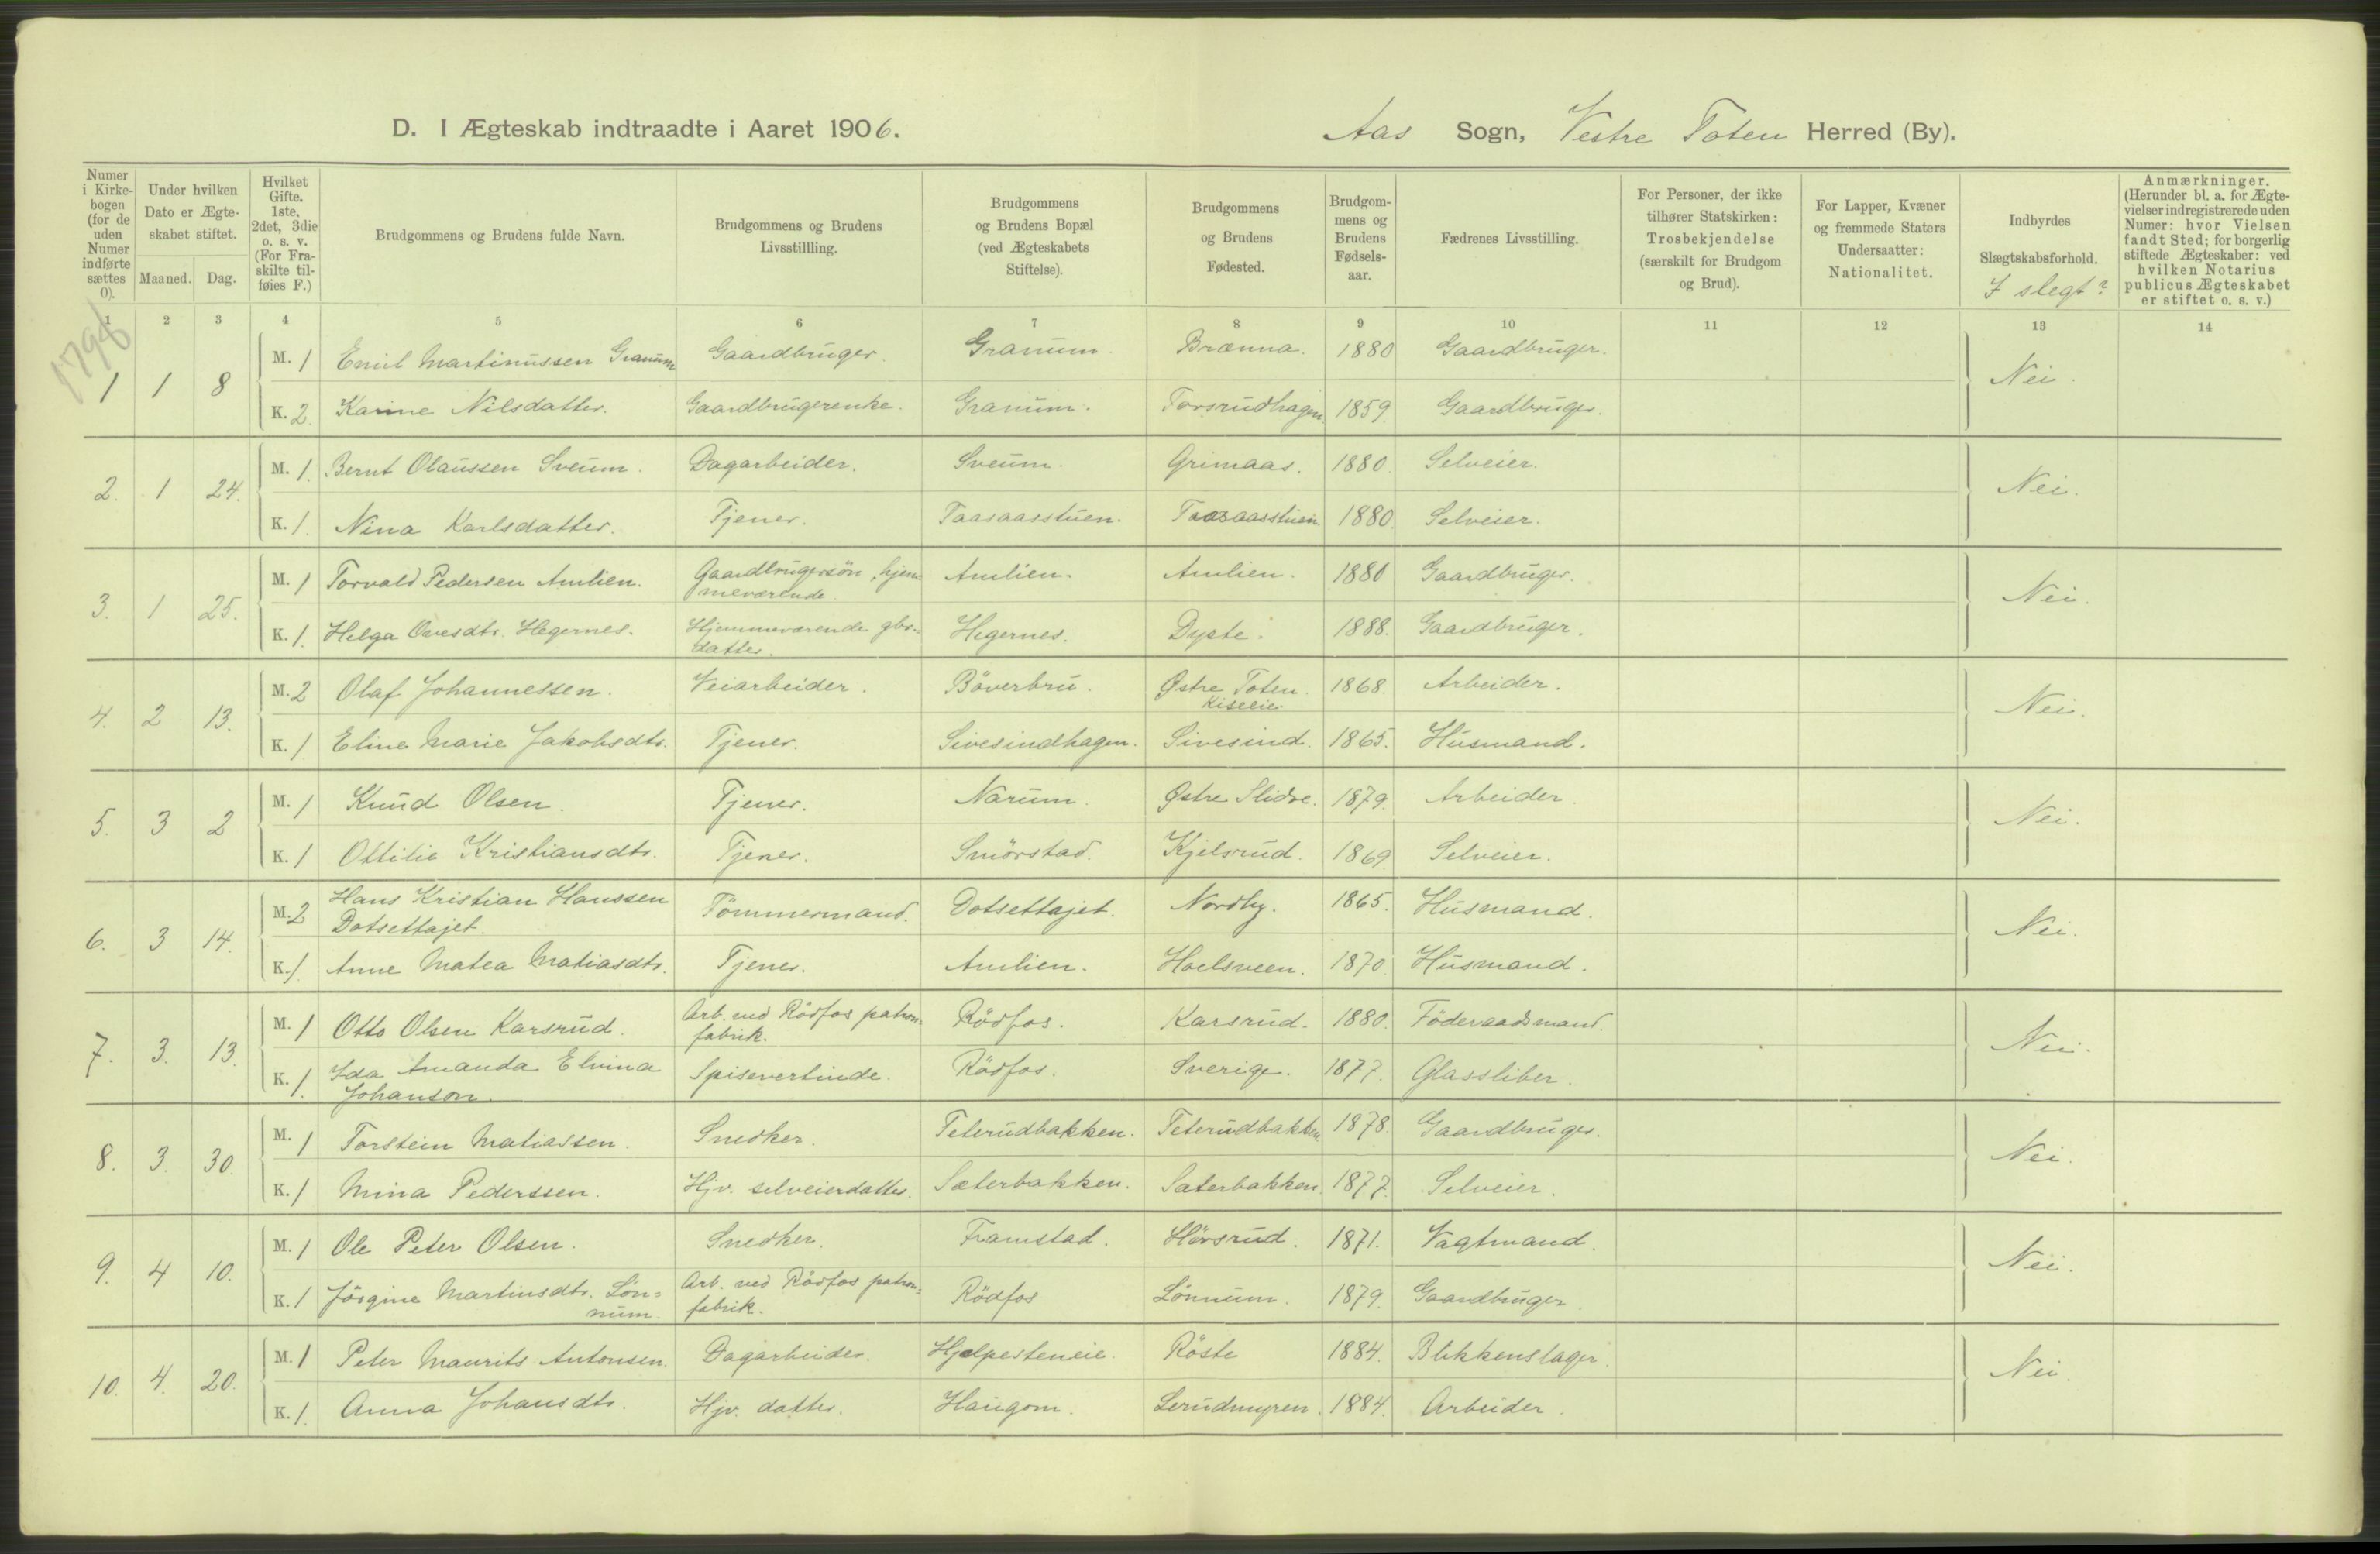 D. I Ægteskab indtraadte i Aaret 1906. Aas Sogn, Vestre Toten Herred (By).
Numer i Kirke-bogen (for de uden Numer indførte sættes 0). Under hvilken Dato er Ægte-skabet stiftet. Maaned. Dag. Hvilket Gifte. 1ste, 2det, 3die o. s. v. (For Fra-skilte til-føies F.) Brudgommens og Brudens fulde Navn. Brudgommens og Brudens Livsstillling. Brudgommens og Brudens Bopæl (ved Ægteskabets Stiftelse). Brudgommens og Brudens Fødested. Brudgom-mens og Brudens Fødsels-aar. Fædrenes Livsstilling. For Personer, der ikke tilhører Statskirken: Trosbekjendelse (særskilt for Brudgom og Brud). For Lapper, Kvæner og fremmede Staters Undersaatter: Nationalitet. Indbyrdes Slægtskabsforhold. I slegt? Anmærkninger. (Herunder bl. a. for Ægte-vielser indregistrerede uden Numer: hvor Vielsen fandt Sted; for borgerlig stiftede Ægteskaber: ved hvilken Notarius publicus Ægteskabet er stiftet o. s. v.)
1 2 3 4 5 6 7 8 9 10 11 12 13 14
1 1 8 M. 1 Emil Martinussen Granum Gaardbruger. Granum Brænna. 1880 Gaardbruger. Nei.
K. 2. Karine Nilsdatter. Gaardbrugerenke. Granum. Torsrudhagen 1859 Gaardbruger.
2. 1 24. M. 1. Bernt Olaussen Sveum. Dagarbeider. Sveum. Grimaas. 1880. Selveier. Nei.
K. 1. Nina Karlsdatter. Tjener. Taasaasstuen. Taasaasstuen 1880 Selveier.
3. 1 25. M. 1 Torvald Pedersen Amlien. Gaardbrugersön, hjem=meværende. Amlien. Amlien. 1880 Gaardbruger. Nei.
K. 1. Helga Ovesdtr. Hegernes. Hjemmeværende gbr.=datter. Hegernes. Dyste. 1888. Gaardbruger.
4. 2 13. M. 2 Olaf Johannessen. Veiarbeider. Böverbru. Østre Toten. Kiseeie 1868. Arbeider. Nei.
K. 1 Eline Marie Jakobsdtr. Tjener. Sivesindhagen. Sivesind. 1865. Husmand.
5. 3 2 M. 1 Knud Olsen. Tjener. Narum. Østre Slidre. 1879. Arbeider. Nei.
K. 1 Ottilie Kristiansdtr. Tjener. Smörstad. Kjelsrud. 1869 Selveier.
6. 3 14. M. 2 Hans Kristian Hanssen Dotsettajet. Tömmermand. Dotsettajet. Nordby. 1865. Husmand. Nei.
K. 1 Anne Matea Matiasdtr. Tjener. Amlien. Hoelsveen. 1870. Husmand.
7. 3. 13. M. 1 Otto Olsen Karsrud. Arb. ved Rödfos patron=fabrik. Rödfos. Karsrud. 1880. Föderaadsmand. Nei.
K. 1. Ida Amanda Elvina Johanson. Spisevertinde. Rödfos. Sverige. 1877. Glassliber.
8. 3. 30. M. 1 Torstein Matiassen. Snedker. Teterudbakken. Teterudbakken 1878. Gaardbruger. Nei.
K. 1 Mina Pederssen. Hjv. selveierdatter. Sæterbakken. Sæterbakken 1877. Selveier.
9. 4 10. M. 1 Ole Peter Olsen. Snedker. Framstad. Hörsrud. 1871. Vagtmand. Nei.
K. 1 Jörgine Martinsdtr. Lön=num. Arb. ved Rödfos patron=fabrik. Rödfos Lönnum. 1879. Gaardbruger.
10. 4. 20. M. 1 Peter Maurits Antonsen. Dagarbeider. Hjelpesteneie. Röste 1884. Blikkenslager. Nei.
K. 1. Anna Johansdtr. Hjv. datter. Haugom. Lerudmyren. 1884. Arbeider.